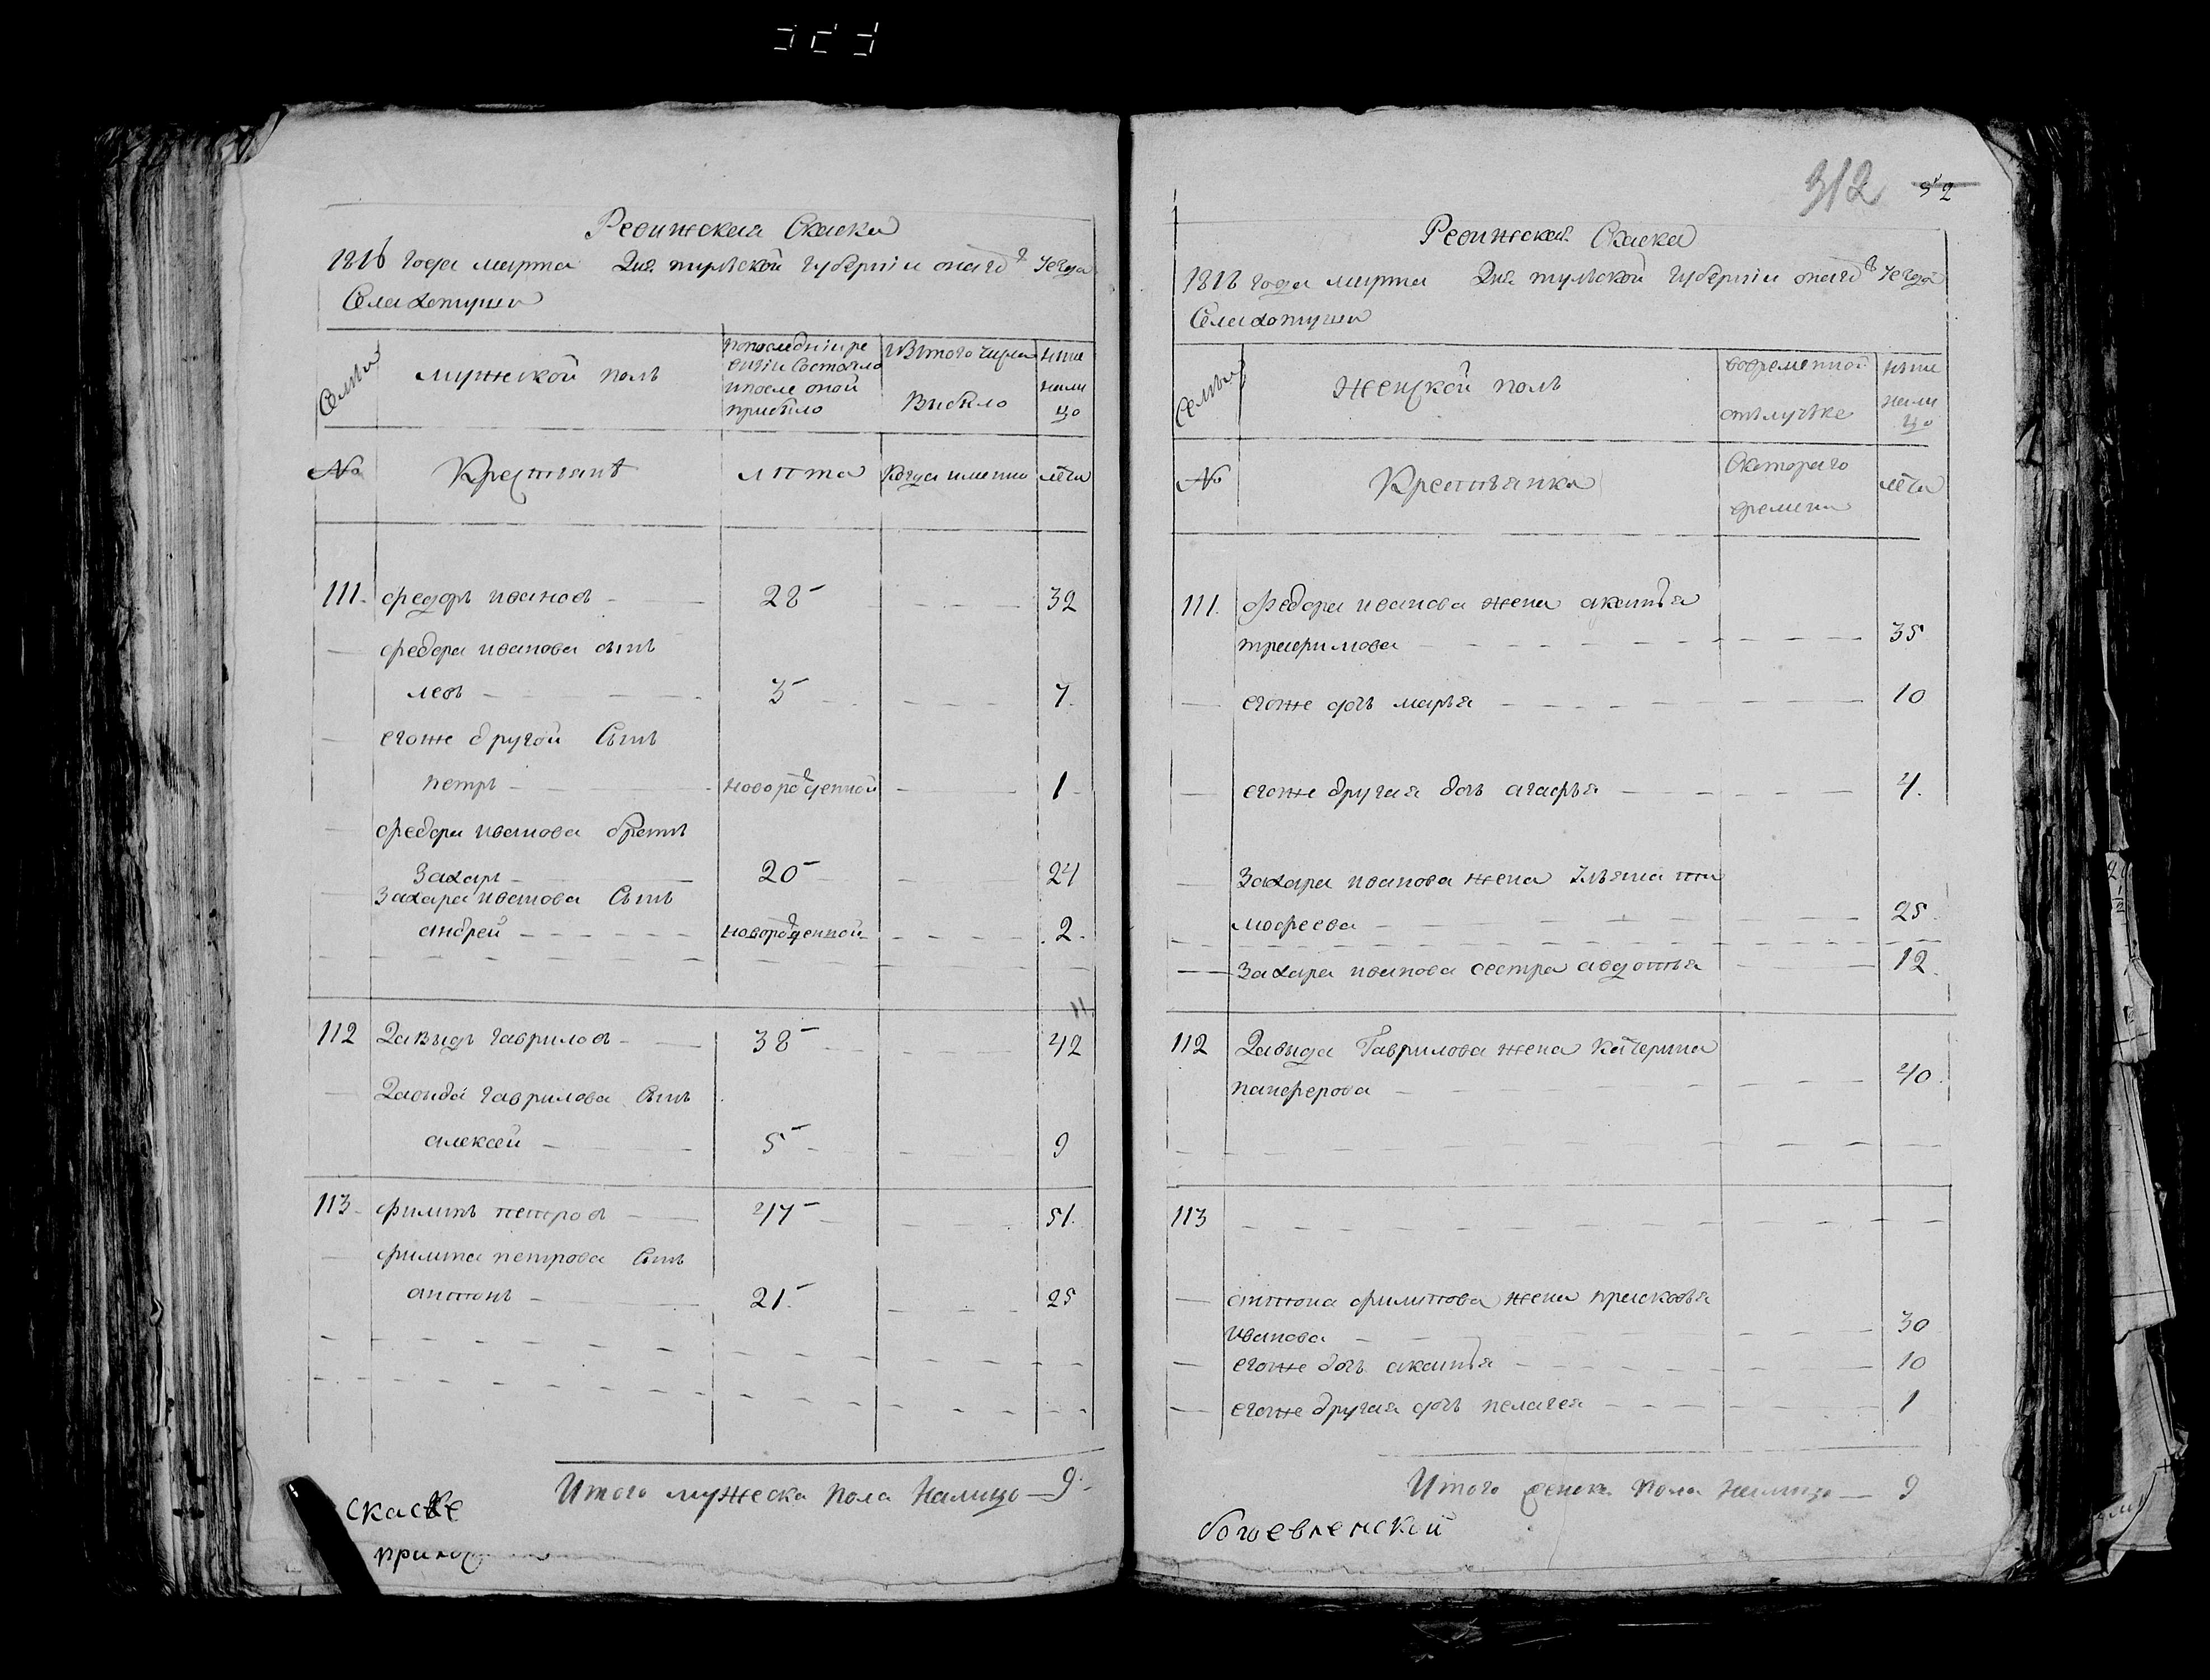 312 52
Ревижская Скаска
1816 года марта Дня тульской губернии онагод уезда
Села хотуши
Семьи
мужеской полъ
попоследнiи ре
визiи Состояло
ипосле оной
прибыло
Изтого числа
Выбыло
ныне
нали
цо
№
Крестьянѣ
лѣта
Когда имянно
лѣта
111. федоръ ивановъ 28 32
федора иванова сынъ
левъ 3 7
егоже другой Сынъ
петръ новорожденной 1
федора иванова братъ
Захаръ 20 24
Захара иванова Сынъ
андрей новорожденной 2
112 Давыдъ гавриловъ 38 42
Давыда гаврилова Сынъ
алексей 5 9
113 филипъ петровъ 47 51
филипа петрова Сынъ
антонъ 21 25
Итого мужеска пола налицо 9
скаске
Ревижская Скаска
1816 года марта Дня тульской губернии онагод уезда
Села хотуши
Семьи
Женской полъ
вовременной
отълучке
ныне
нали
цо
№
Крестьянка
Скотораго
времени
лѣта
111. Федора иванова жена акулина
трафимова 35
егоже дочь марья 10
егоже другая дочь агафья 4.
Захара иванова жена Ульяна ти
мофеева 25
Захара иванова сестра авдотья 12
112 Давыда Гаврилова жена Катерина
панферова 40
113
антона филипова жена прасковья
Иванова 30
егоже дочь 10
егоже другая дочь пелагея 1
Итого женска пола налицо 9
богоевленской